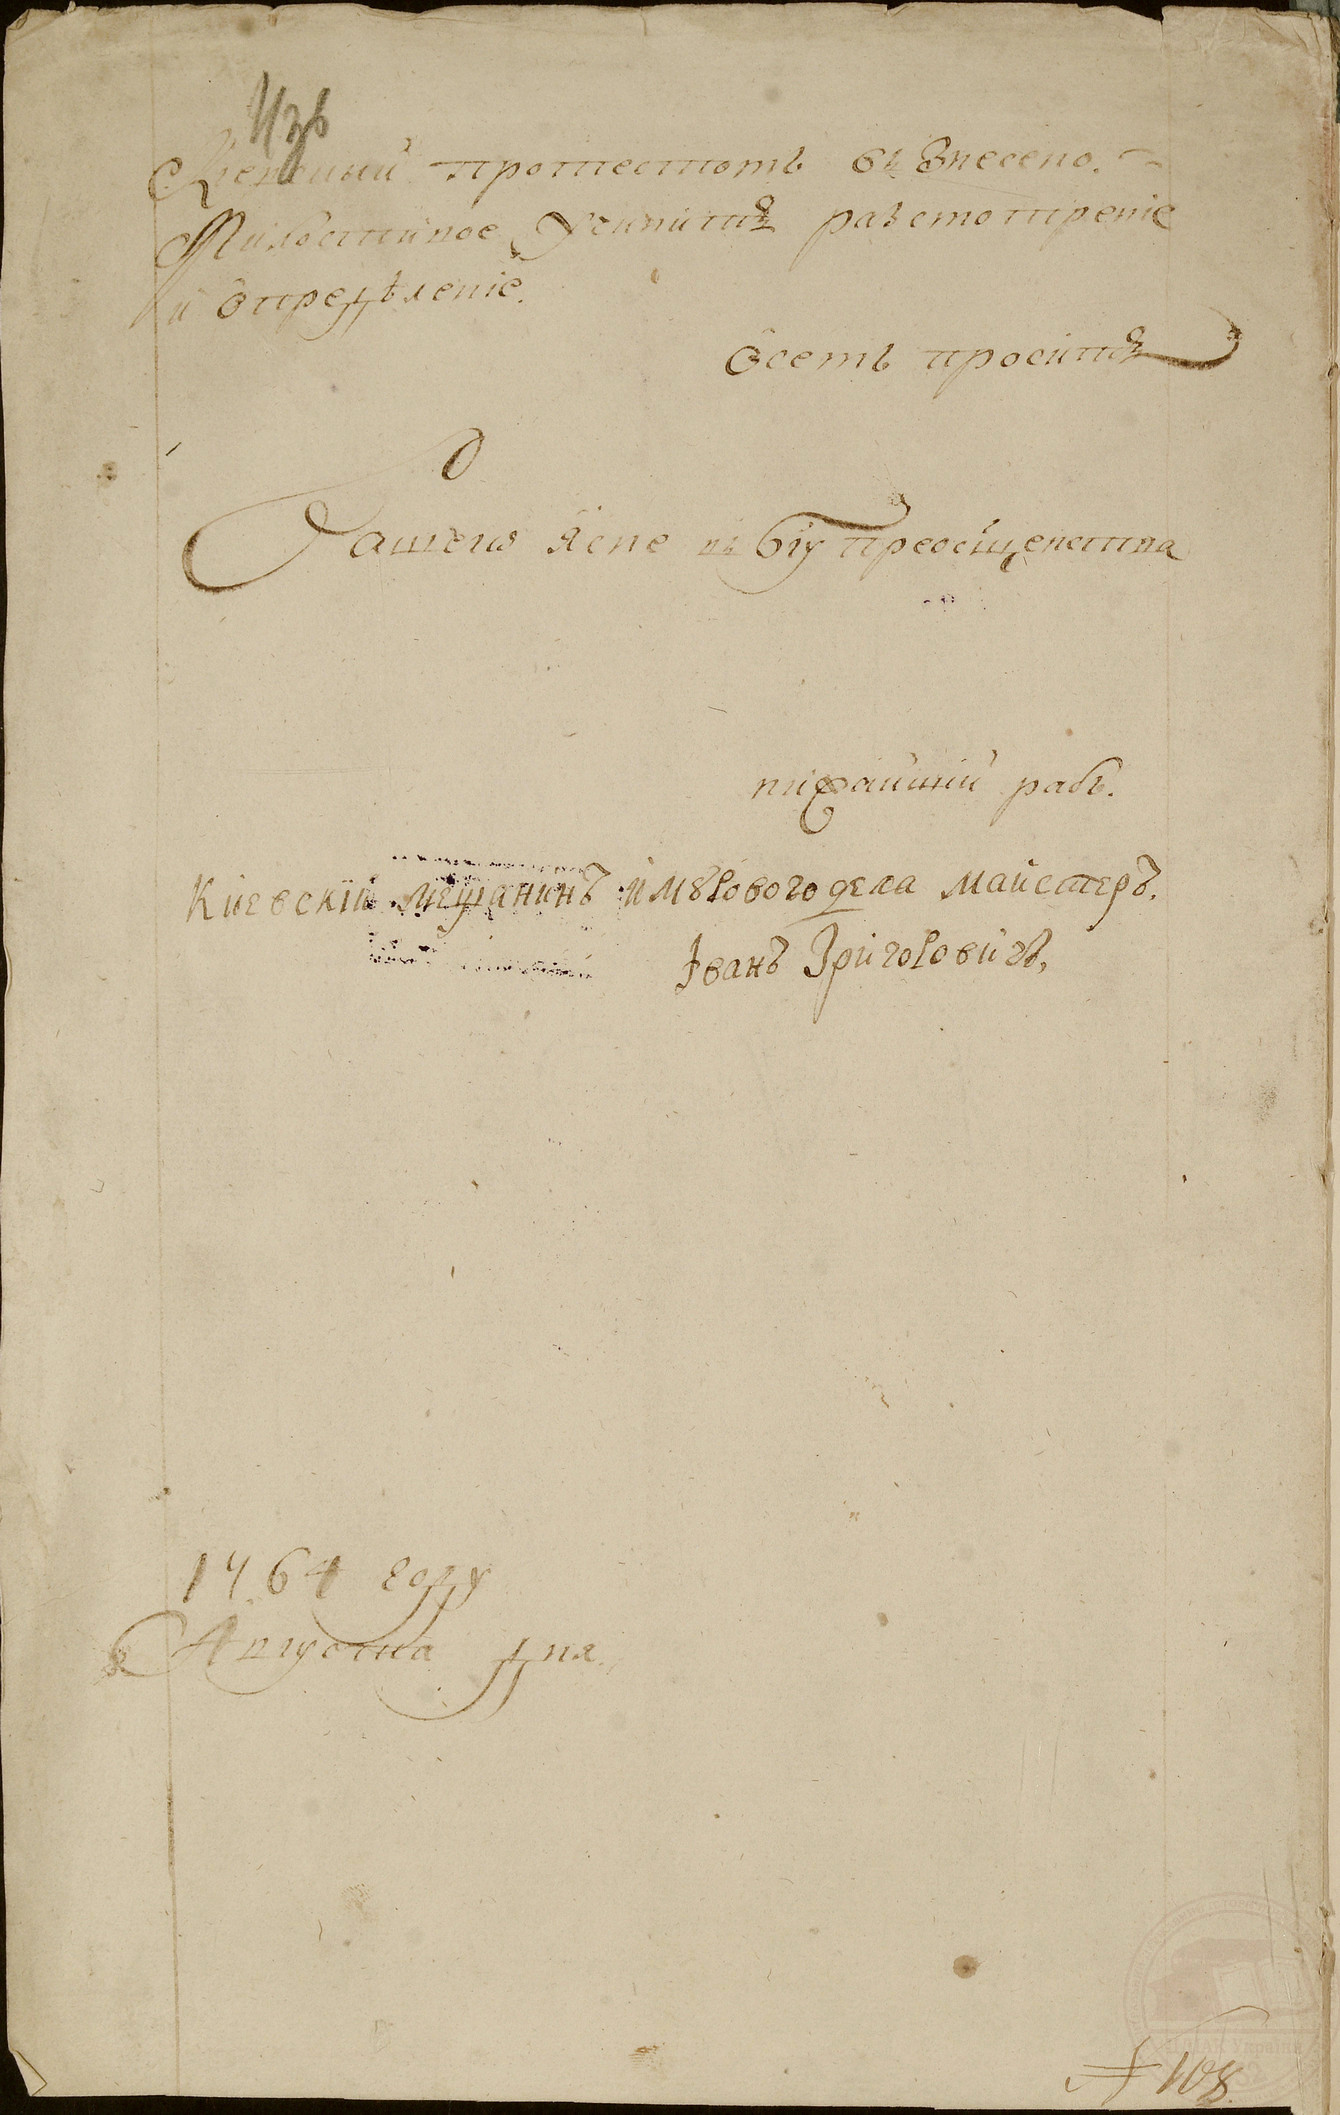 протестомъ внесено.
Милостивое учинить разсмотрение
и опредѣленіе.
просить
Вашего Ясне въ Бгу Преосщенства
нижайшій рабъ.
Киевскій мещанинъ имѣрового дела майстеръ.
Іванъ Григоровичъ,
1764 году
Августа дня
108